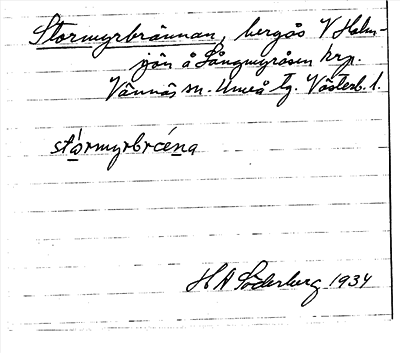 Stormyrbrännan, bergås V Holm-
sjön å Långmyråsen krp.
Vännäs sn. Umeå tg. Västerb. l.
stårmyrbrɛ́na
H A Söderberg 1934